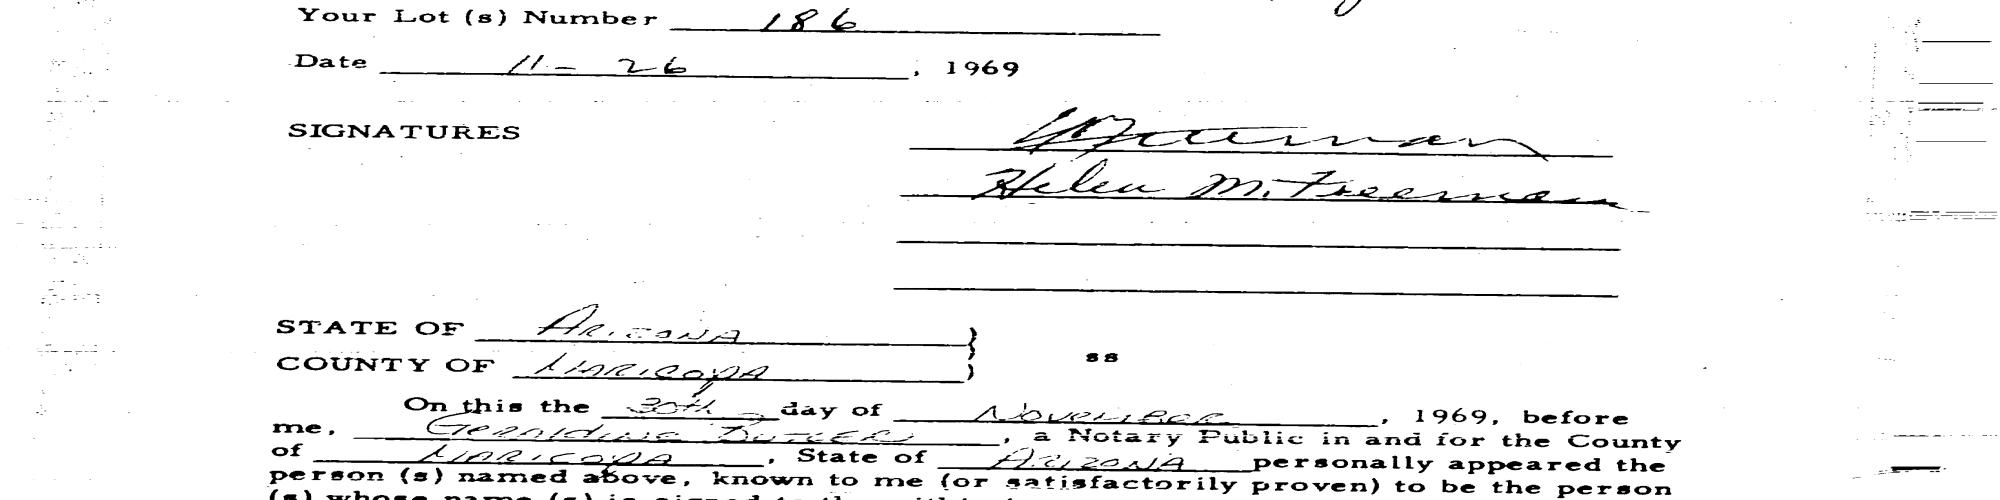 Your Lot (s) Number 186
Date 11- 26, 1969
SIGNATURES
Freeman
Helen M. Freeman
STATE OF Arizona }
COUNTY OF Maricopa } ss
On this the 30th day of November, 1969, before
me, Geraldine Butler, a Notary Public in and for the County
of Maricopa, State of Arizona personally appeared the
person (s) named above, known to me (or satisfactorily proven) to be the person